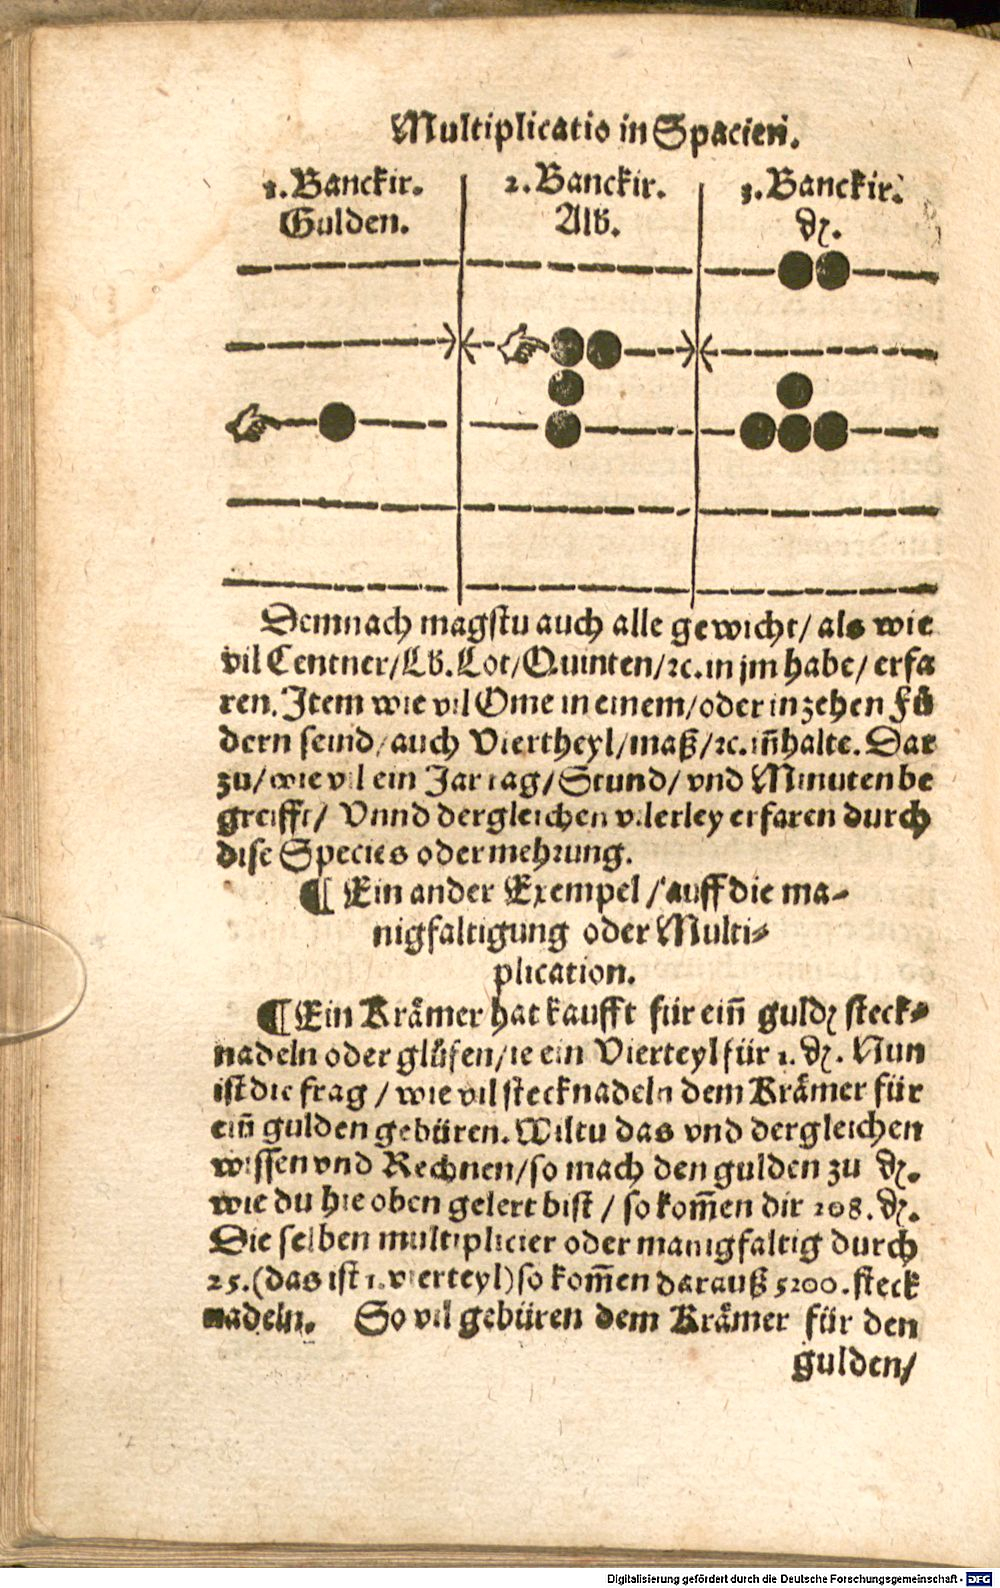 Multiplicatio in Spacien.
1. Banckir. 2. Banckir. 3. Banckir.
Gulden. Alb. ₰.
Demnach magstu auch alle gewicht/ als wie
vil Centner/ Lb. Lot/ Quinten/ ꝛc. in jm habe/ erfa
ren. Item wie vil Ome in einem/ oder in zehen Fů
dern seind/ auch Viertheyl/ maß/ ꝛc. iñhalte. Dar
zu/ wie vil ein Jar tag/ Stund/ vnd Minuten be
greifft/ Vnnd dergleichen vilerley erfaren durch
dise Species oder mehrung.
¶ Ein ander Exempel/ auff die ma-
nigfaltigung oder Multi-
plication.
¶ Ein Krämer hat kaufft für eiñ guldẽ steck-
nadeln oder glůfen/ ie ein Vierteyl für 1. ₰. Nun
ist die frag/ wie vil stecknadeln dem Krämer für
eiñ gulden gebüren. Wiltu das vnd dergleichen
wissen vnd Rechnen/ so mach den gulden zu ₰.
wie du hie oben gelert bist/ so kom̃en dir 208. ₰.
Die selben multiplicier oder manigfaltig durch
25. (das ist 1. vierteyl) so kom̃en darauß 5200. steck
nadeln. So vil gebüren dem Krämer für den
gulden/
Digitalisierung gefördert durch die Deutsche Forschungsgemeinschaft - DFG